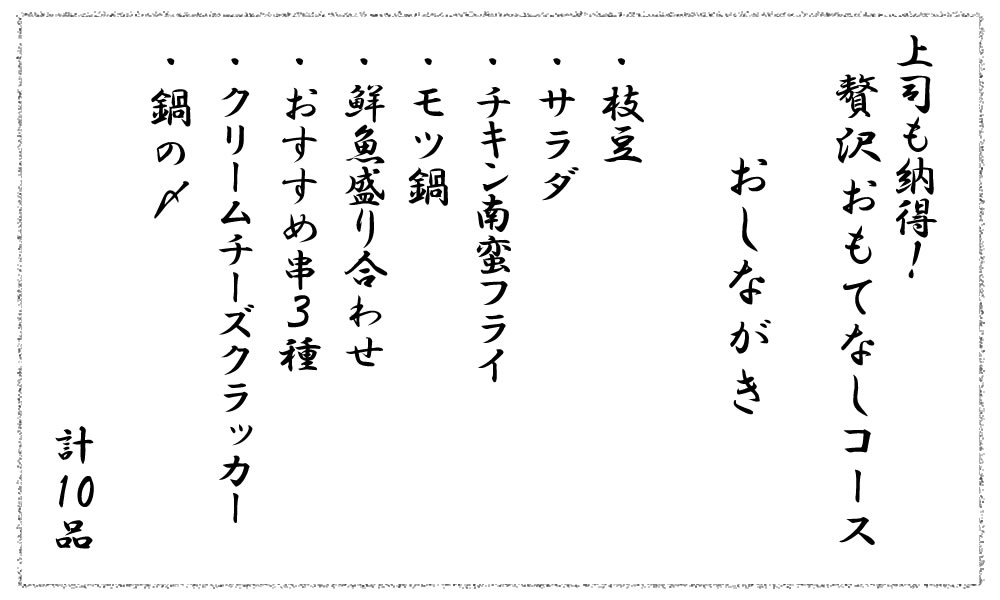 上司も納得！
贅沢おもてなしコース
おしながき
・枝豆
・サラダ
・チキン南蛮フライ
・モツ鍋
・鮮魚盛り合わせ
・おすすめ串３種
・クリームチーズクラッカー
・鍋の〆
計10品